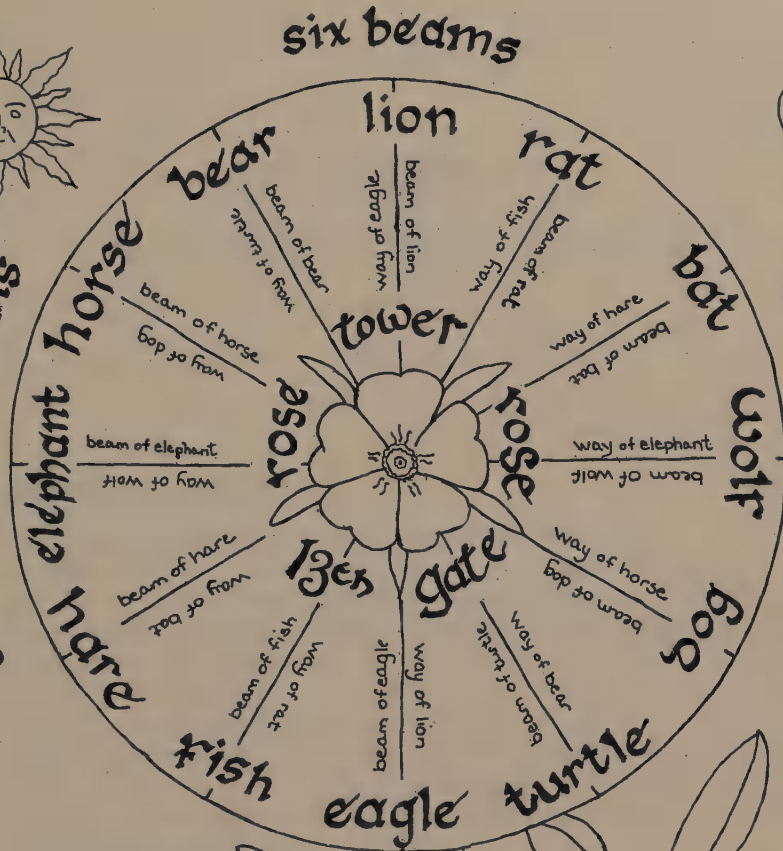 six beams
lion
rat
bat
wolf
dog
turtle
eagle
fish
hare
elephant
horse
bear
way of eagle
beam of lion
way of fish
beam of rat
way of hare
beam of bat
way of elephant
beam of wolf
way of horse
beam of dog
way of bear
beam of turtle
way of lion
beam of eagle
way of rat
beam of fish
way of bat
beam of hare
way of wolf
beam of elephant
way of dog
beam of horse
way of turtle
beam of bear
tower
rose
gate
Izen
rose